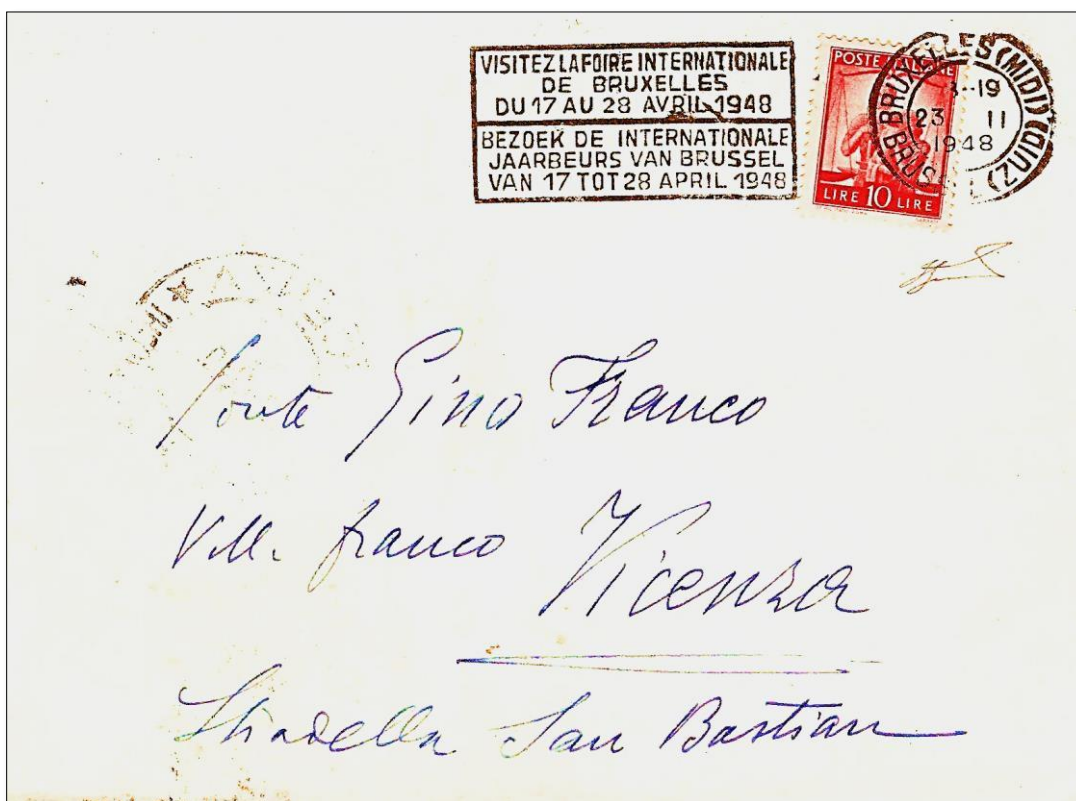 VISITEZ LA FOIRE INTERNATIONALE
DE BRUXELLES
DU 17 AU 28 AVRIL 1948
BEZOEK DE INTERNATIONALE
JAARBEURS VAN BRUSSEL
VAN 17 TOT 28 APRIL 1948
POSTE ITALIANE
LIRE 10 LIRE
BRUXELLES (MIDI)
BRUSSEL (ZUID)
-19
23 II
1948
Conte Gino Franco
Vill. franco Vicenza
Stradella San Bastian